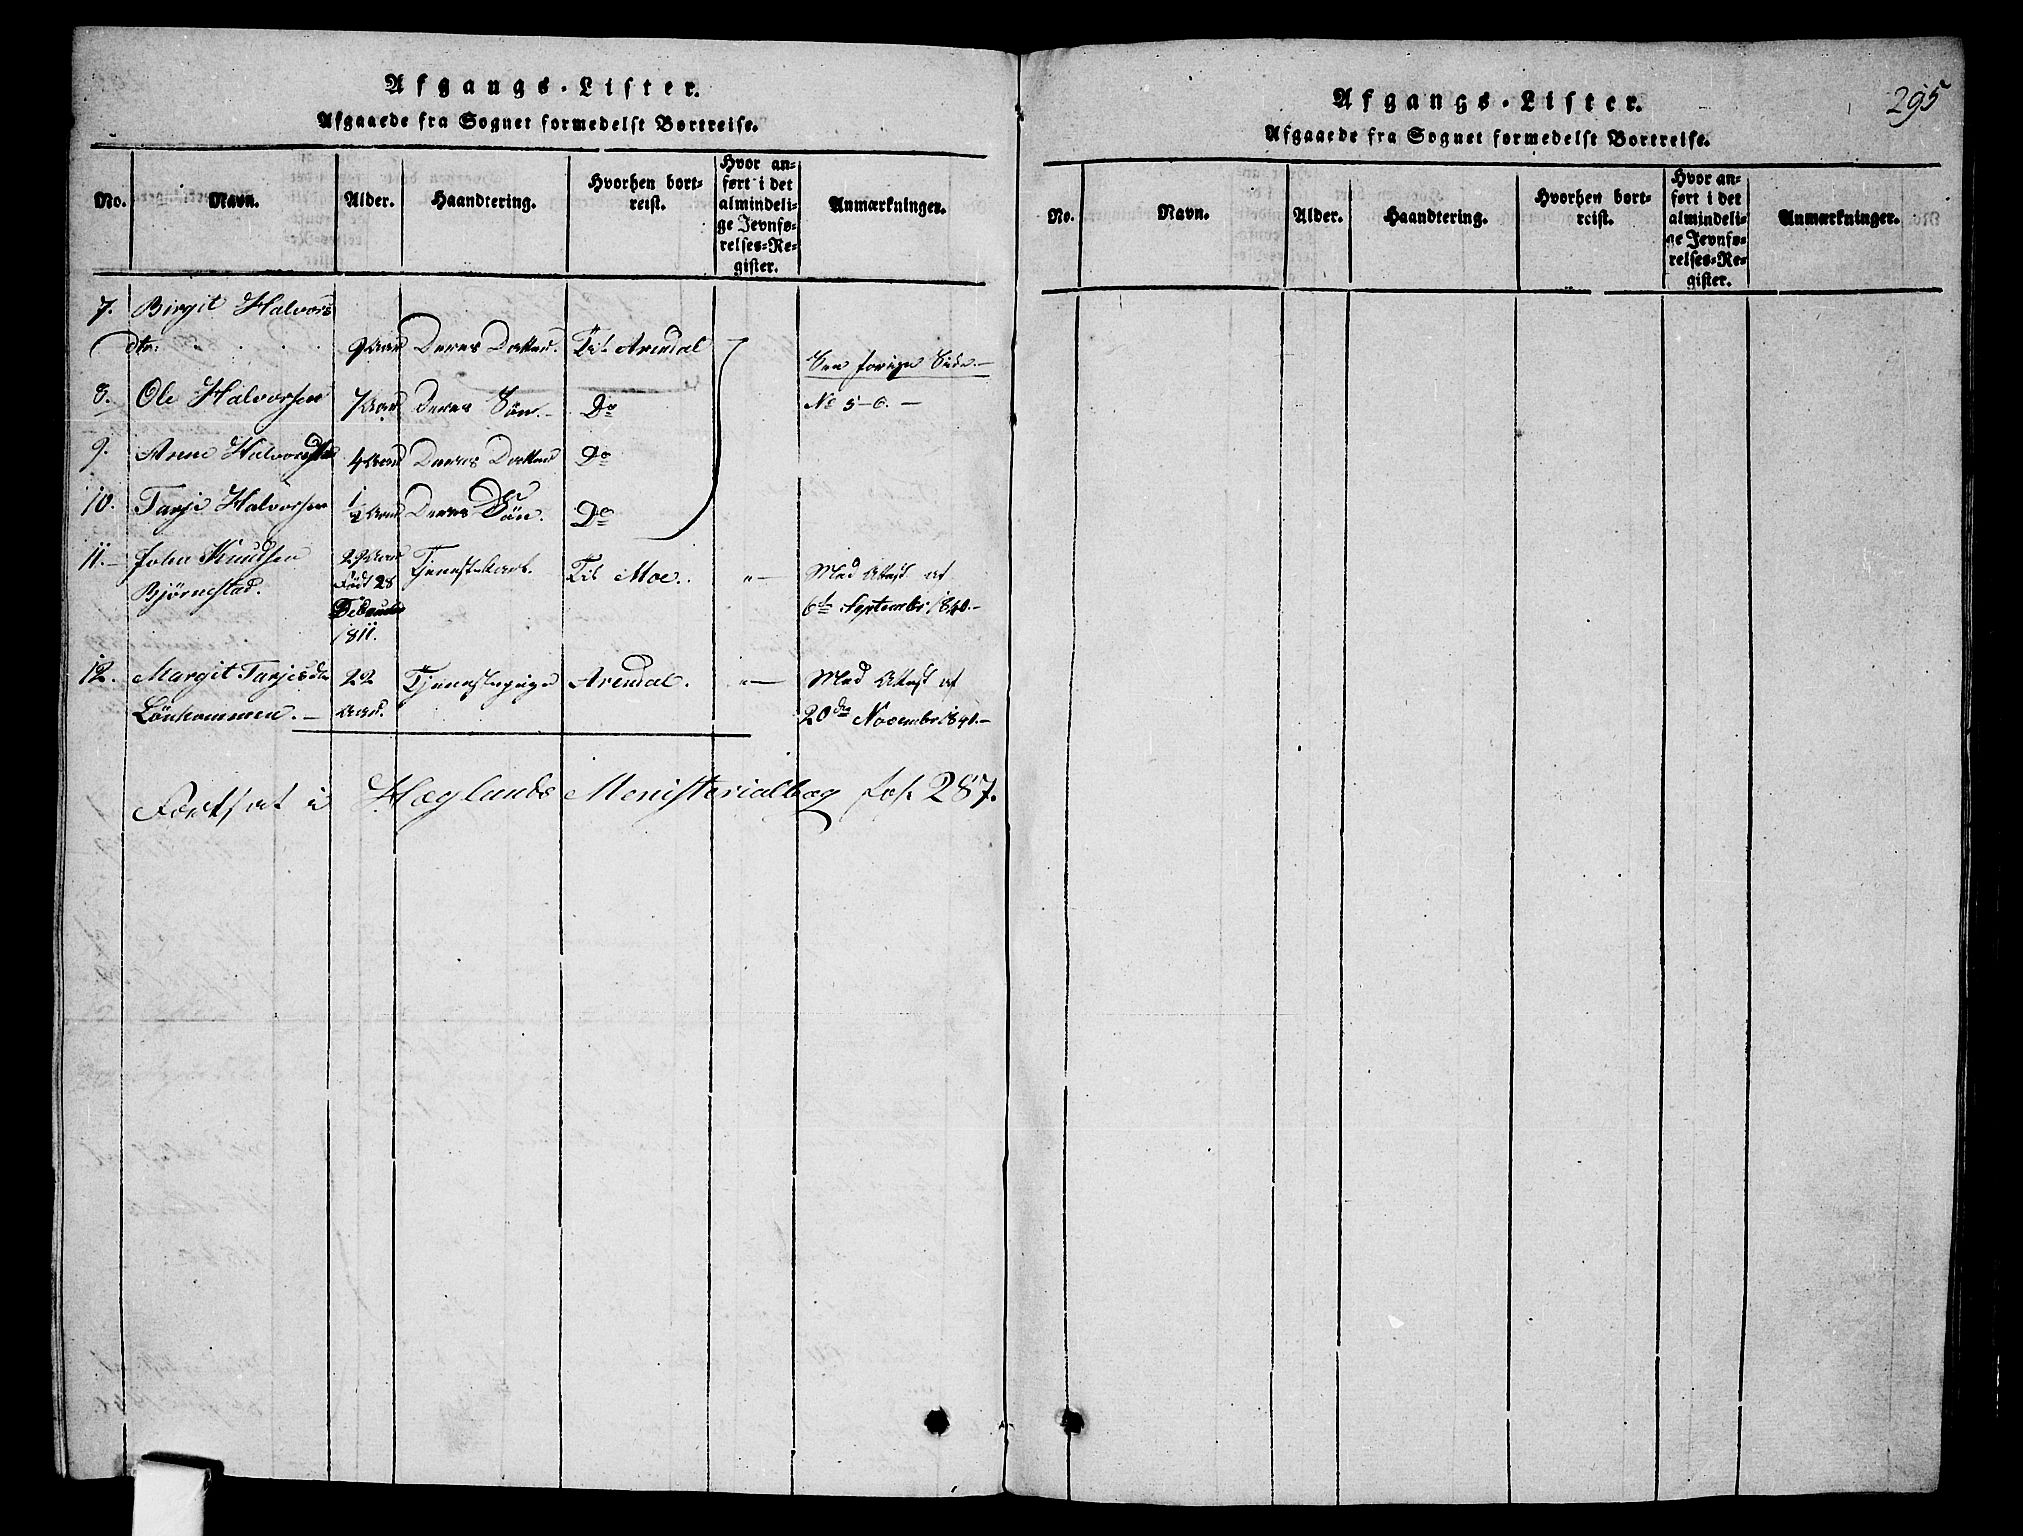 Afgangs-Lister.
Afgaaede fra Sognet formedelst Bortreise.
No.
Navn.
Alder.
Haandtering.
Hvorhen bort-
reist.
Hvor an-
ført i det
almindeli-
ge Jevnfø-
relses-Re-
gister.
Anmærkninger.
7. Birgit Halvors
dtr. 9 Aar Deres Datter. Til Arendal See forige Side.-
8. Ole Halvorsen 7 Aar Deres Søn.- Do No 5-6.-
9. Anne Halvorsdtr 4 Aar Deres Datter Do
10. Tarje Halvorsen 1/2 Aar Deres Søn. Do
11.- John Knudsen 29 Aar Tjenestekarl. Til Moe. "- Med Attest af
Bjørnestad. Født 28 6te September 1840.-
Februar
1811.
12. Margit Tarjesdtr 22 Tjenestepige Arendal. "- Med Attest af
Lønkommen.- Aar. 20de November 1840.-
Fortsat i Høglands Ministerialbog fol. 287.
Afgangs-Lister.
295
Afgaaede fra Sognet formedelst Bortreise.
No.
Navn.
Alder.
Haandtering.
Hvorhen bort-
reist.
Hvor an-
ført i det
almindeli-
ge Jevnfø-
relses-Re-
gister.
Anmærkninger.